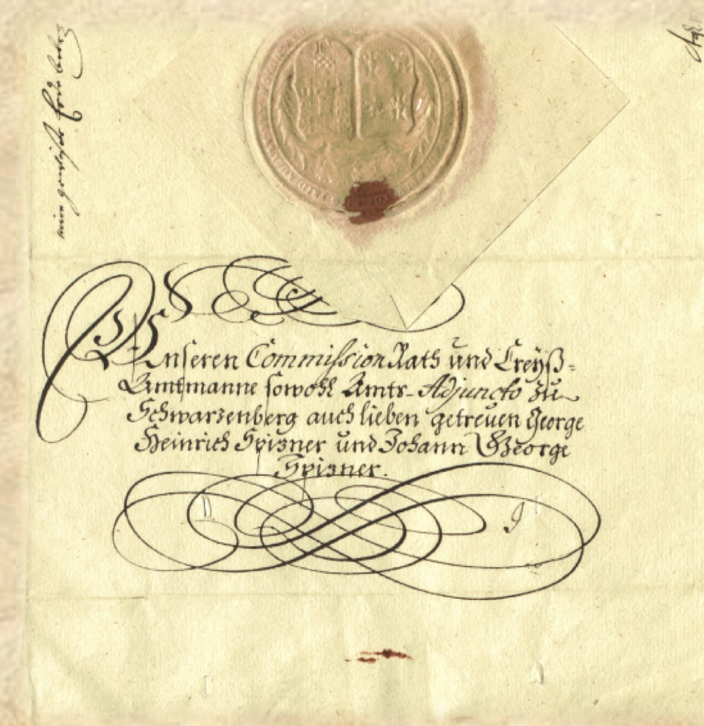 Unseren Commission Rath und Creyß-
Amtmanne sowohl Amts-Adjuncto zu
Schwarzenberg auch lieben getreuen George
Heinrich Spizner und Johann George
Spizner.